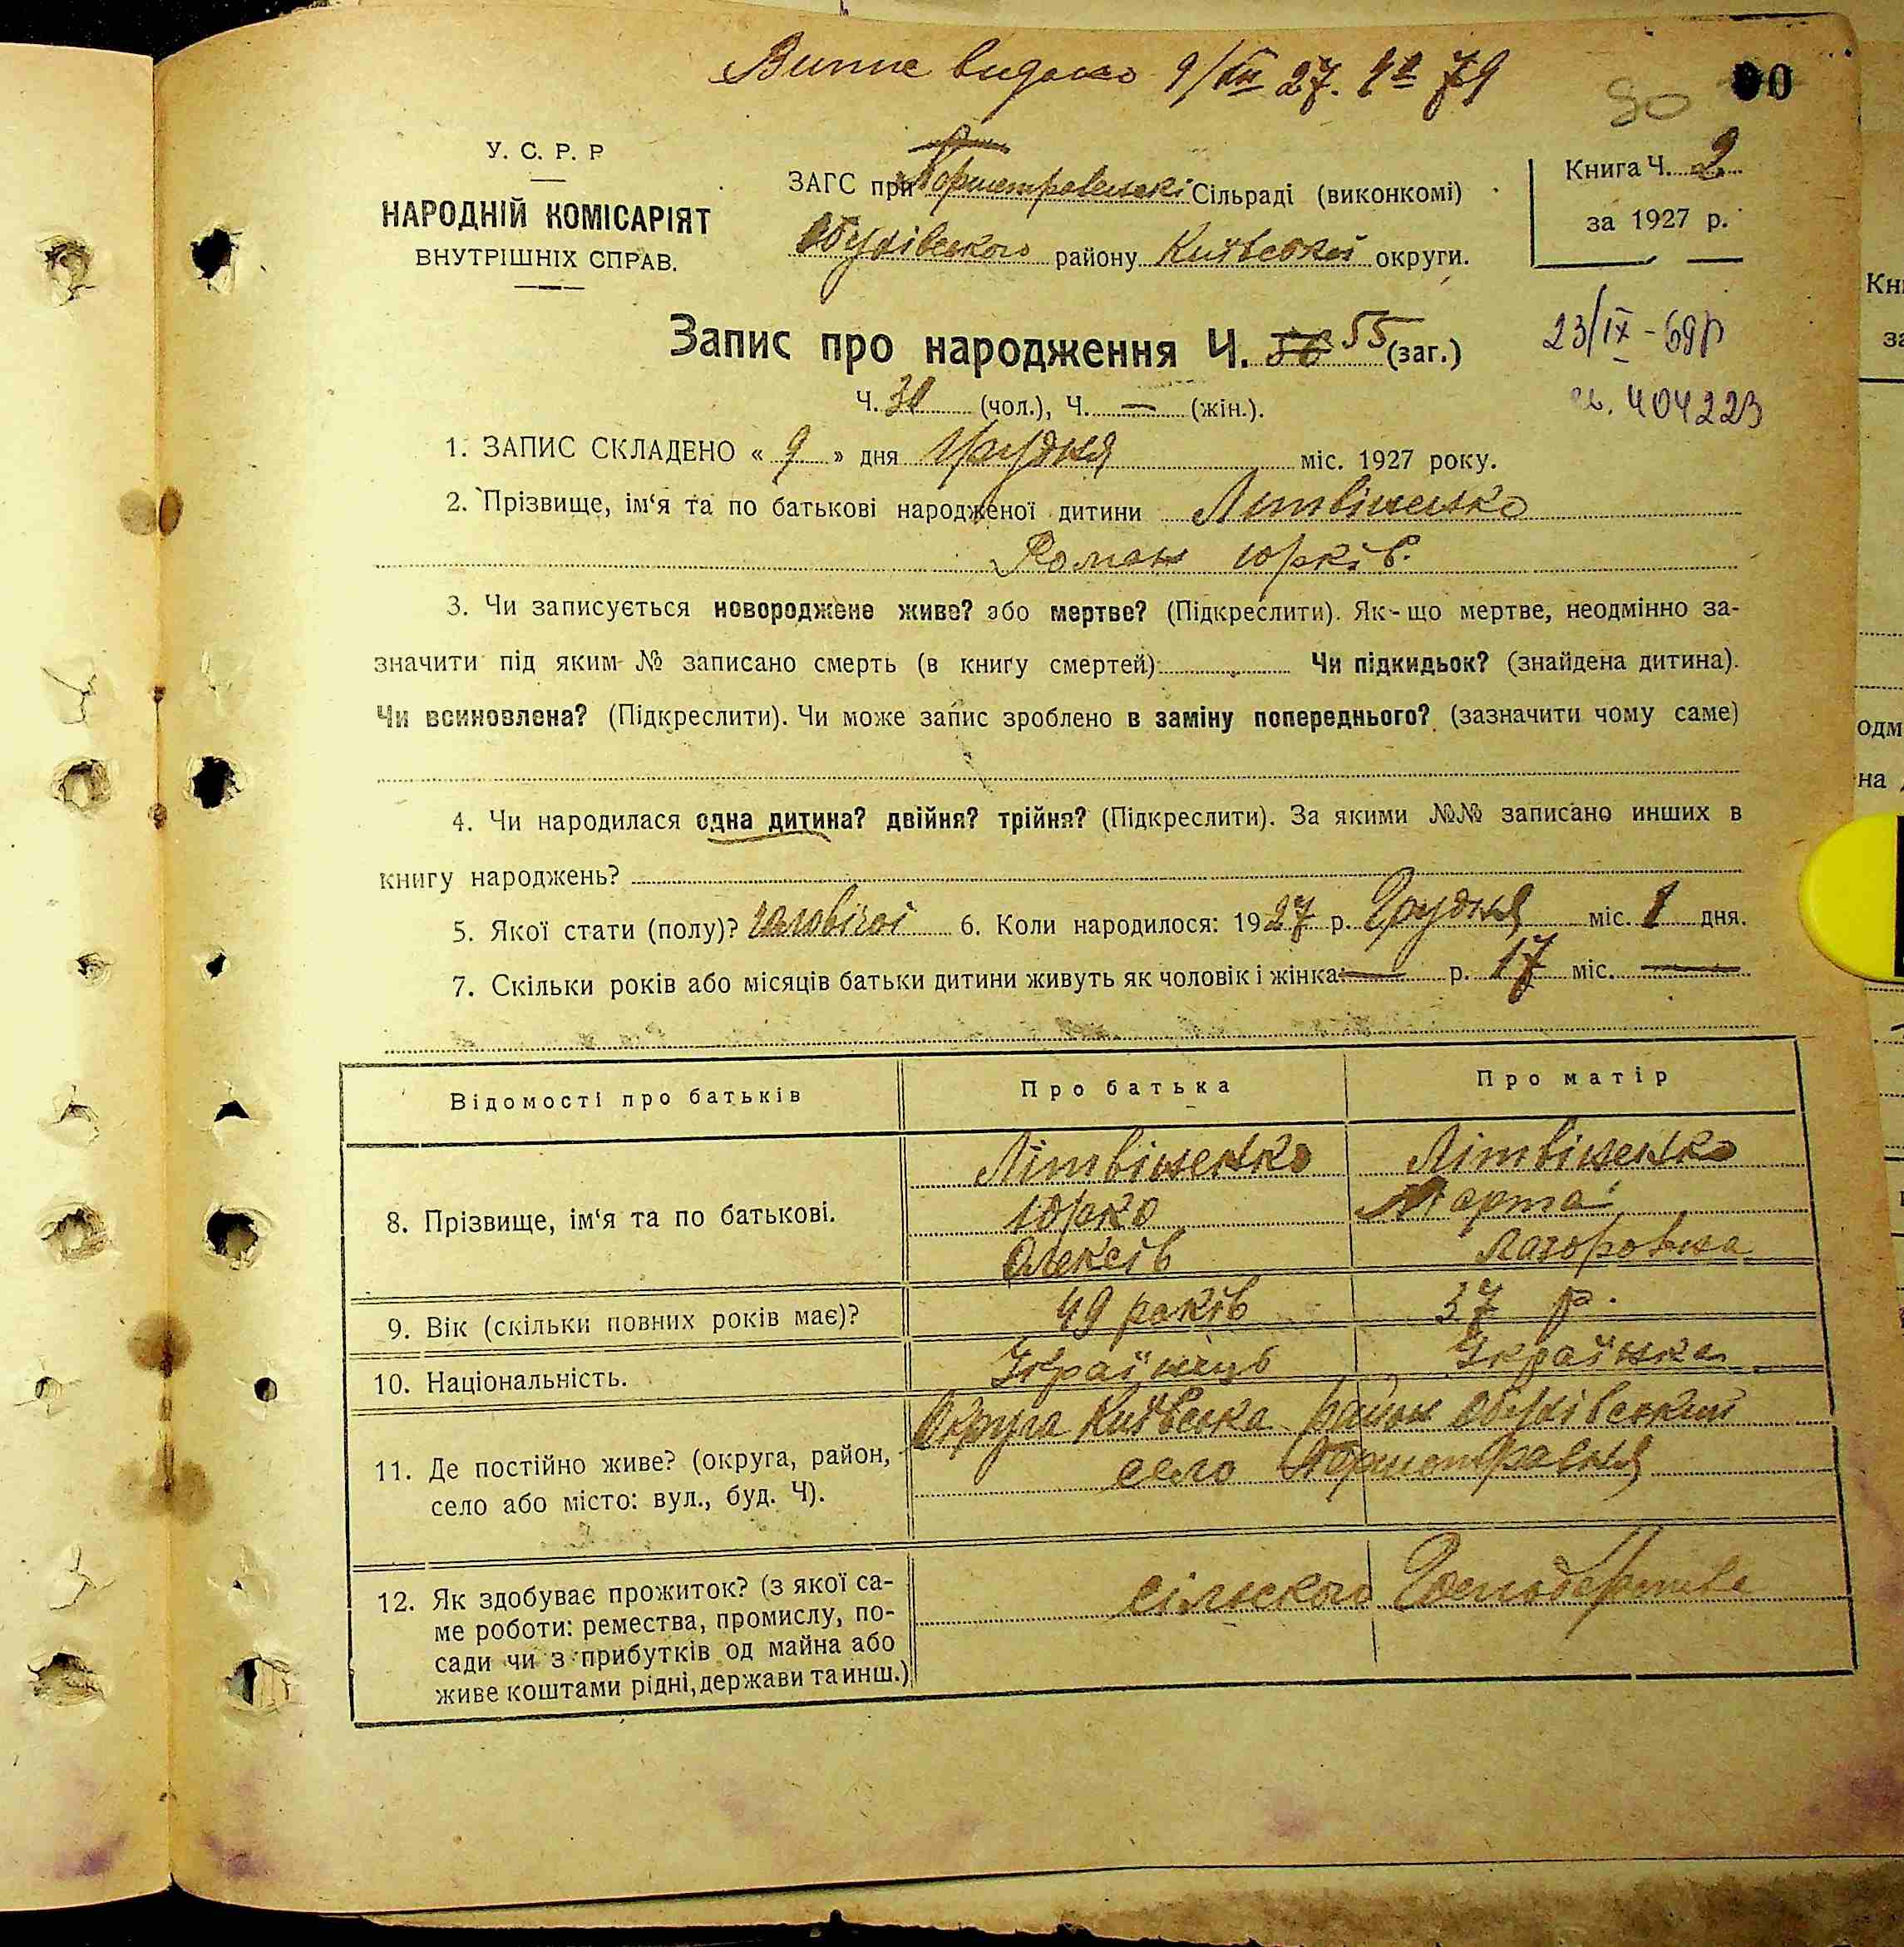 Випис видано 9/XII 27. № 79
90
90
У. С. Р. Р
НАРОДНІЙ КОМІСАРІЯТ
ВНУТРІШНІХ СПРАВ.
ЗАГС при Сільраді (виконкомі)
Обухівського району Київської округи.
Книга Ч. 2
за 1927 р.
Запис про народження Ч. 56 55 (заг.)
23/IX - 69р
404223
Ч. 30 (чол.), Ч. — (жін.).
1. ЗАПИС СКЛАДЕНО « 9 » дня Грудня міс. 1927 року.
2. Прізвище, ім‘я та по батькові народженої дитини Литвіненко
Роман Юрків.
3. Чи записується новороджене живе? або мертве? (Підкреслити). Як-що мертве, неодмінно за-
значити під яким № записано смерть (в книгу смертей) Чи підкидьок? (знайдена дитина).
Чи всиновлена? (Підкреслити). Чи може запис зроблено в заміну попереднього? (зазначити чому саме)
4. Чи народилася одна дитина? двійня? трійня? (Підкреслити). За якими №№ записано инших в
книгу народжень?
5. Якої стати (полу)? чоловічої 6. Коли народилося: 1927 р. Грудня міс. 1 дня.
7. Скільки років або місяців батьки дитини живуть як чоловік і жінка: — р. 17 міс. —
Відомості про батьків
Про батька
Про матір
8. Прізвище, ім‘я та по батькові.
Літвіненко
Юрко
Олексів
Літвіненко
Марта
Лазоровна
9. Вік (скільки повних років має)?
49 років
37 р.
10. Національність.
Українець
Українка
11. Де постійно живе? (округа, район,
село або місто: вул., буд. Ч).
Округа Київська район Обухівський
село
12. Як здобуває прожиток? (з якої са-
ме роботи: ремества, промислу, по-
сади чи з прибутків од майна або
живе коштами рідні, держави та инш.)
сільского Господарства